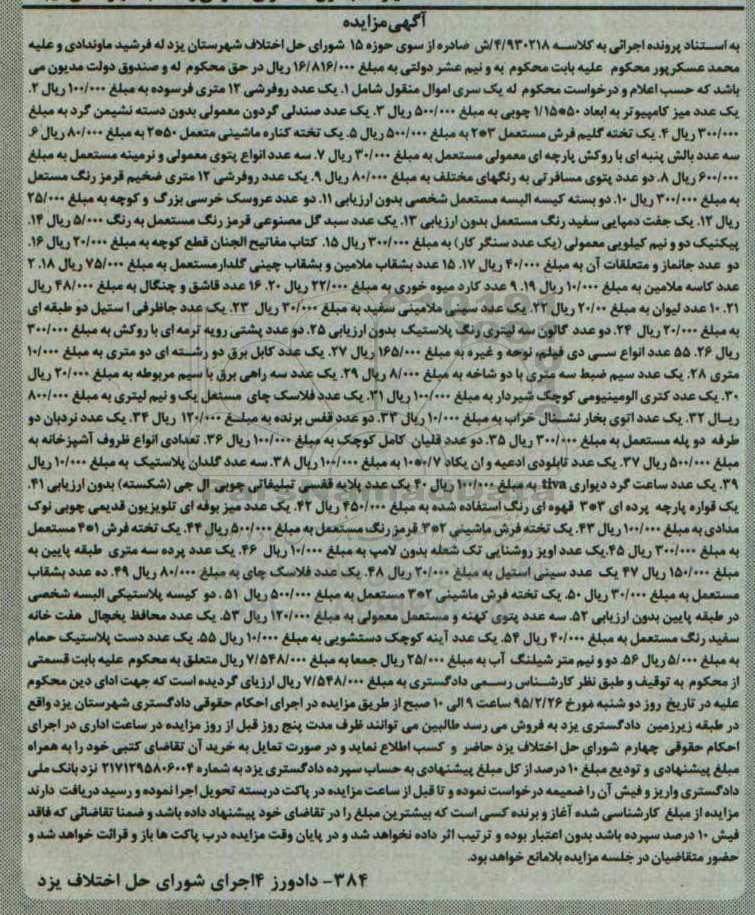 آگهی مزایده
به استناد پرونده اجرائی به کلاسه ۴/۹۳۰۲۱۸/ش صادره از سوی حوزه ۱۵ شورای حل اختلاف شهرستان یزد له فرشید ماوندادی و علیه
محمد عسکرپور محکوم علیه بابت محکوم به و نیم عشر دولتی به مبلغ ۱۶/۸۱۶/۰۰۰ ریال در حق محکوم له و صندوق دولت مدیون می
باشد که حسب اعلام و درخواست محکوم له یک سری اموال منقول شامل ۱. یک عدد روفرشی ۱۲ متری فرسوده به مبلغ ۱۰۰/۰۰۰ ریال ۲.
یک عدد میز کامپیوتر به ابعاد ۵۰*۱/۱۵ چوبی به مبلغ ۵۰۰/۰۰۰ ریال ۳. یک عدد صندلی گردون معمولی بدون دسته نشیمن گرد به مبلغ
۳۰۰/۰۰۰ ریال ۴. یک تخته گلیم فرش مستعمل ۳*۲ به مبلغ ۵۰۰/۰۰۰ ریال ۵. یک تخته کناره ماشینی متعمل ۵۰*۲ به مبلغ ۸۰/۰۰۰ ریال ۶.
سه عدد بالش پنبه ای با روکش پارچه ای معمولی مستعمل به مبلغ ۳۰/۰۰۰ ریال ۷. سه عدد انواع پتوی معمولی و نرمینه مستعمل به مبلغ
۶۰۰/۰۰۰ ریال ۸. دو عدد پتوی مسافرتی به رنگهای مختلف به مبلغ ۸۰/۰۰۰ ریال ۹. یک عدد روفرشی ۱۲ متری ضخیم قرمز رنگ مستعل
به مبلغ ۳۰۰/۰۰۰ ریال ۱۰. دو بسته کیسه البسه مستعمل شخصی بدون ارزیابی ۱۱. دو عدد عروسک خرسی بزرگ و کوچه به مبلغ ۲۵/۰۰۰
ریال ۱۲. یک جفت دمپایی سفید رنگ مستعمل بدون ارزیابی ۱۳. یک عدد سبد گل مصنوعی قرمز رنگ مستعمل به رنگ ۵/۰۰۰ ریال ۱۴.
پیکنیک دو و نیم کیلویی معمولی (یک عدد سنگر کار) به مبلغ ۳۰۰/۰۰۰ ریال ۱۵. کتاب مفاتیح الجنان قطع کوچه به مبلغ ۲۰/۰۰۰ ریال ۱۶.
دو عدد جانماز و متعلقات آن به مبلغ ۴۰/۰۰۰ ریال ۱۷. ۱۵ عدد بشقاب ملامین و بشقاب چینی گلدار مستعمل به مبلغ ۷۵/۰۰۰ ریال ۱۸. ۲
عدد کاسه ملامین به مبلغ ۱۰/۰۰۰ ریال ۱۹. ۹ عدد کارد میوه خوری به مبلغ ۲۲/۰۰۰ ریال ۲۰. ۱۶ عدد قاشق و چنگال به مبلغ ۴۸/۰۰۰ ریال
۲۱. ۱۰ عدد لیوان به مبلغ ۲۰/۰۰ ریال ۲۲. یک عدد سینی ملامینی سفید به مبلغ ۳۰/۰۰۰ ریال ۲۳. یک عدد جاظرفی ا ستیل دو طبقه ای
به مبلغ ۲۰/۰۰۰ ریال ۲۴. دو عدد گالون سه لیتری رنگ پلاستیک بدون ارزیابی ۲۵. دو عدد پشتی رویه ترمه ای با روکش به مبلغ ۳۰۰/۰۰۰
ریال ۲۶. ۵۵ عدد انواع سی دی فیلم، نوحه و غیره به مبلغ ۱۶۵/۰۰۰ ریال ۲۷. یک عدد کابل برق دو رشته ای دو متری به مبلغ ۱۰/۰۰۰
متری ۲۸. یک عدد سیم ضبط سه متری با دو شاخه به مبلغ ۸/۰۰۰ ریال ۲۹. یک عدد سه راهی برق با سیم مربوطه به مبلغ ۲۰/۰۰۰ ریال
۳۰. یک عدد کتری الومینیومی کوچک شیردار به مبلغ ۱۰۰/۰۰۰ ریال ۳۱. یک عدد فلاسک چای مستعل یک و نیم لیتری به مبلغ ۸۰۰/۰۰۰
ریال ۳۲. یک عدد اتوی بخار نشنال خراب به مبلغ ۱۰/۰۰۰ ریال ۳۳. دو عدد قفس برنده به مبلغ ۱۲۰/۰۰۰ ریال ۳۴. یک عدد نردبان دو
طرفه دو پله مستعمل به مبلغ ۳۰۰/۰۰۰ ریال ۳۵. دو عدد قلیان کامل کوچک به مبلغ ۱۰۰/۰۰۰ ریال ۳۶. تعدادی انواع ظروف آشپزخانه به
مبلغ ۵۰۰/۰۰۰ ریال ۳۷. یک عدد تابلودی ادعیه و ان یکاد ۰/۷*۱۰ به مبلغ ۱۰۰/۰۰۰ ریال ۳۸. سه عدد گلدان پلاستیک به مبلغ ۱۰/۰۰۰ ریال
۳۹. یک عدد ساعت گرد دیواری tiva به مبلغ ۱۰۰/۰۰۰ ریال ۴۰ یک عدد پلایه قفسی تبلیغاتی چوبی ال جی (شکسته) بدون ارزیابی ۴۱.
یک قواره پارچه پرده ای ۳*۳ قهوه ای رنگ استفاده شده به مبلغ ۴۵۰/۰۰۰ ریال ۴۲. یک عدد میز بوفه ای تلویزیون قدیمی چوبی نوک
مدادی به مبلغ ۱۰۰/۰۰۰ ریال ۴۳. یک تخته فرش ماشینی ۲*۳ قرمز رنگ مستعمل به مبلغ ۵۰۰/۰۰۰ ریال ۴۴. یک تخته فرش ۱*۴ مستعمل
به مبلغ ۳۰۰/۰۰۰ ریال ۴۵.یک عدد اویز روشنایی تک شعله بدون لامپ به مبلغ ۱۰/۰۰۰ ریال ۴۶. یک عدد پرده سه متری طبقه پایین به
مبلغ ۱۵۰/۰۰۰ ریال ۴۷ یک عدد سینی استیل به مبلغ ۲۰/۰۰۰ ریال ۴۸. یک عدد فلاسک چای به مبلغ ۸۰/۰۰۰ ریال ۴۹. ده عدد بشقاب
مستعمل به مبلغ ۳۰/۰۰۰ ریال ۵۰. یک تخته فرش ماشینی ۲*۳ مستعمل به مبلغ ۵۰۰/۰۰۰ ریال ۵۱. دو کیسه پلاستیکی البسه شخصی
در طبقه پایین بدون ارزیابی ۵۲. سه عدد پتوی کهنه و مستعمل معمولی به مبلغ ۱۲۰/۰۰۰ ریال ۵۳. یک عدد محافظ یخچال هفت خانه
سفید رنگ مستعمل به مبلغ ۴۰/۰۰۰ ریال ۵۴. یک عدد آینه کوچک دستشویی به مبلغ ۱۰/۰۰۰ ریال ۵۵. یک عدد دست پلاستیک حمام
به مبلغ ۵/۰۰۰ ریال ۵۶. دو و نیم متر شیلنگ آب به مبلغ ۲۵/۰۰۰ ریال جمعا به مبلغ ۷/۵۴۸/۰۰۰ ریال متعلق به محکوم علیه بابت قسمتی
از محکوم به توقیف و طبق نظر کارشناس رسمی دادگستری به مبلغ ۷/۵۴۸/۰۰۰ ریال ارزیای گردیده است که جهت ادای دین محکوم
علیه در تاریخ روز دو شنبه مورخ ۹۵/۲/۲۶ ساعت ۹ الی ۱۰ صبح از طریق مزایده در اجرای احکام حقوقی دادگستری شهرستان یزد واقع
در طبقه زیرزمین دادگستری یزد به فروش می رسد طالبین می توانند ظرف مدت پنج روز قبل از روز مزایده در ساعت اداری در اجرای
احکام حقوقی چهارم شورای حل اختلاف یزد حاضر و کسب اطلاع نماید و در صورت تمایل به خرید آن تقاضای کتبی خود را به همراه
مبلغ پیشنهادی و تودیع مبلغ ۱۰ درصد از کل مبلغ پیشنهادی به حساب سپرده دادگستری یزد به شماره ۲۱۷۱۲۹۵۸۰۶۰۰۴ نزد بانک ملی
دادگستری واریز و فیش آن را ضمیمه درخواست نموده و تا قبل از ساعت مزایده در پاکت دربسته تحویل اجرا نموده و رسید دریافت دارند
مزایده از مبلغ کارشناسی شده آغاز و برنده کسی است که بیشترین مبلغ را در تقاضای خود پیشنهاد داده باشد و ضمنا تقاضائی که فاقد
فیش ۱۰ درصد سپرده باشد بدون اعتبار بوده و ترتیب اثر داده نخواهد شد و در پایان وقت مزایده درب پاکت ها باز و قرائت خواهد شد و
حضور متقاضیان در جلسه مزایده بلامانع خواهد بود.
۳۸۴- دادورز ۴اجرای شورای حل اختلاف یزد